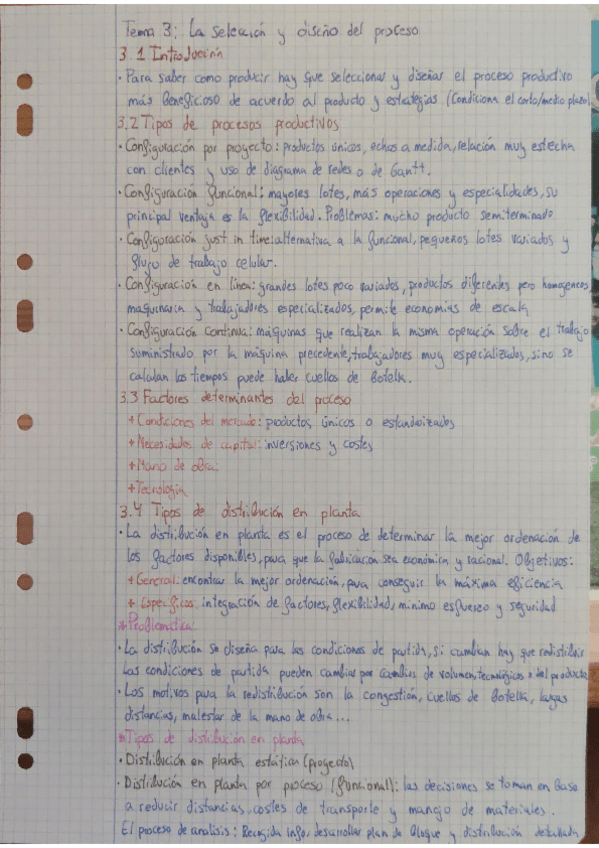 Tema 3: La selección y diseño del proceso
3.1 Introducción
· Para saber como producir hay que seleccionar y diseñar el proceso productivo
más beneficioso de acuerdo al producto y estrategias (Condiciona el corto/medio plazo)
3.2 Tipos de procesos productivos
· Configuración por proyecto: productos únicos, echos a medida, relación muy estrecha
con clientes y uso de diagrama de redes o de Gantt.
· Configuración funcional: mayores lotes, más operaciones y especialidades, su
principal ventaja es la flexibilidad. Problemas: mucho producto semiterminado
· Configuración just in time: alternativa a la funcional, pequeños lotes variados y
flujo de trabajo celular.
· Configuración en línea: grandes lotes poco variados, productos diferentes pero homogéneos,
maquinaria y trabajadores especializados, permite economías de escala
· Configuración continua: máquinas que realizan la misma operación sobre el trabajo
suministrado por la máquina precedente, trabajadores muy especializados, si no se
calculan los tiempos puede haber cuellos de botella.
3.3 Factores determinantes del proceso
+ Condiciones del mercado: productos únicos o estandarizados
+ Necesidades de capital: inversiones y costes
+ Mano de obra:
+ Tecnología
3.4 Tipos de distribución en planta
· La distribución en planta es el proceso de determinar la mejor ordenación de
los factores disponibles, para que la fabricación sea económica y racional. Objetivos:
+ General: encontrar la mejor ordenación, para conseguir la máxima eficiencia
+ Específicos: integración de factores, flexibilidad, mínimo esfuerzo y seguridad
Problemática:
· La distribución se diseña para las condiciones de partida, si cambian hay que redistribuir
Las condiciones de partida pueden cambiar por cambios de volumen, tecnológicos o del producto
· Los motivos para la redistribución son la congestión, cuellos de botella, largas
distancias, malestar de la mano de obra...
Tipos de distribución en planta
· Distribución en planta estática (proyecto)
· Distribución en planta por proceso (funcional): las decisiones se toman en base
a reducir distancias, costes de transporte y manejo de materiales.
El proceso de analisis: Recogida info, desarrollar plan de bloque y distribución detallada